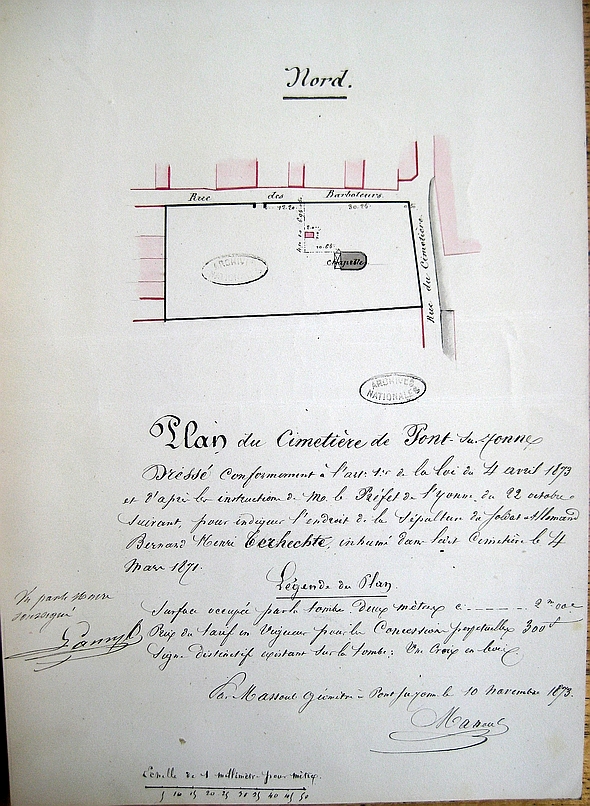 Nord.
Rue des Barboteurs.
30.25
10.65
Chapelle
Rue du Cimetière.
ARCHIVES NATIONALES
ARCHIVES NATIONALES
Plan du Cimetière de Pont-sur-Yonne
Dressé conformément à l'art. 1er de la loi du 4 avril 1873
et d'après les instructions de Mr. le Préfet de l'Yonne du 22 octobre
suivant, pour indiquer l'endroit de la Sépulture du Soldat Allemand
Bernard Henri Terhechte, inhumé dans ledit Cimetière le 4
Mars 1871.
Légende du Plan.
Surface occupée par la tombe deux mètres c 2m 00c
Prix du tarif en Vigueur pour la Concession perpétuelle 300f
Signe distinctif existant sur la tombe: Une Croix en bois
Vu par le Maire
soussigné
Par Massout Géomètre à Pont sur Yonne le 10 novembre 1873.
Massout
Echelle de 1 millimètre pour mètre.
5 10 15 20 25 30 35 40 45 50